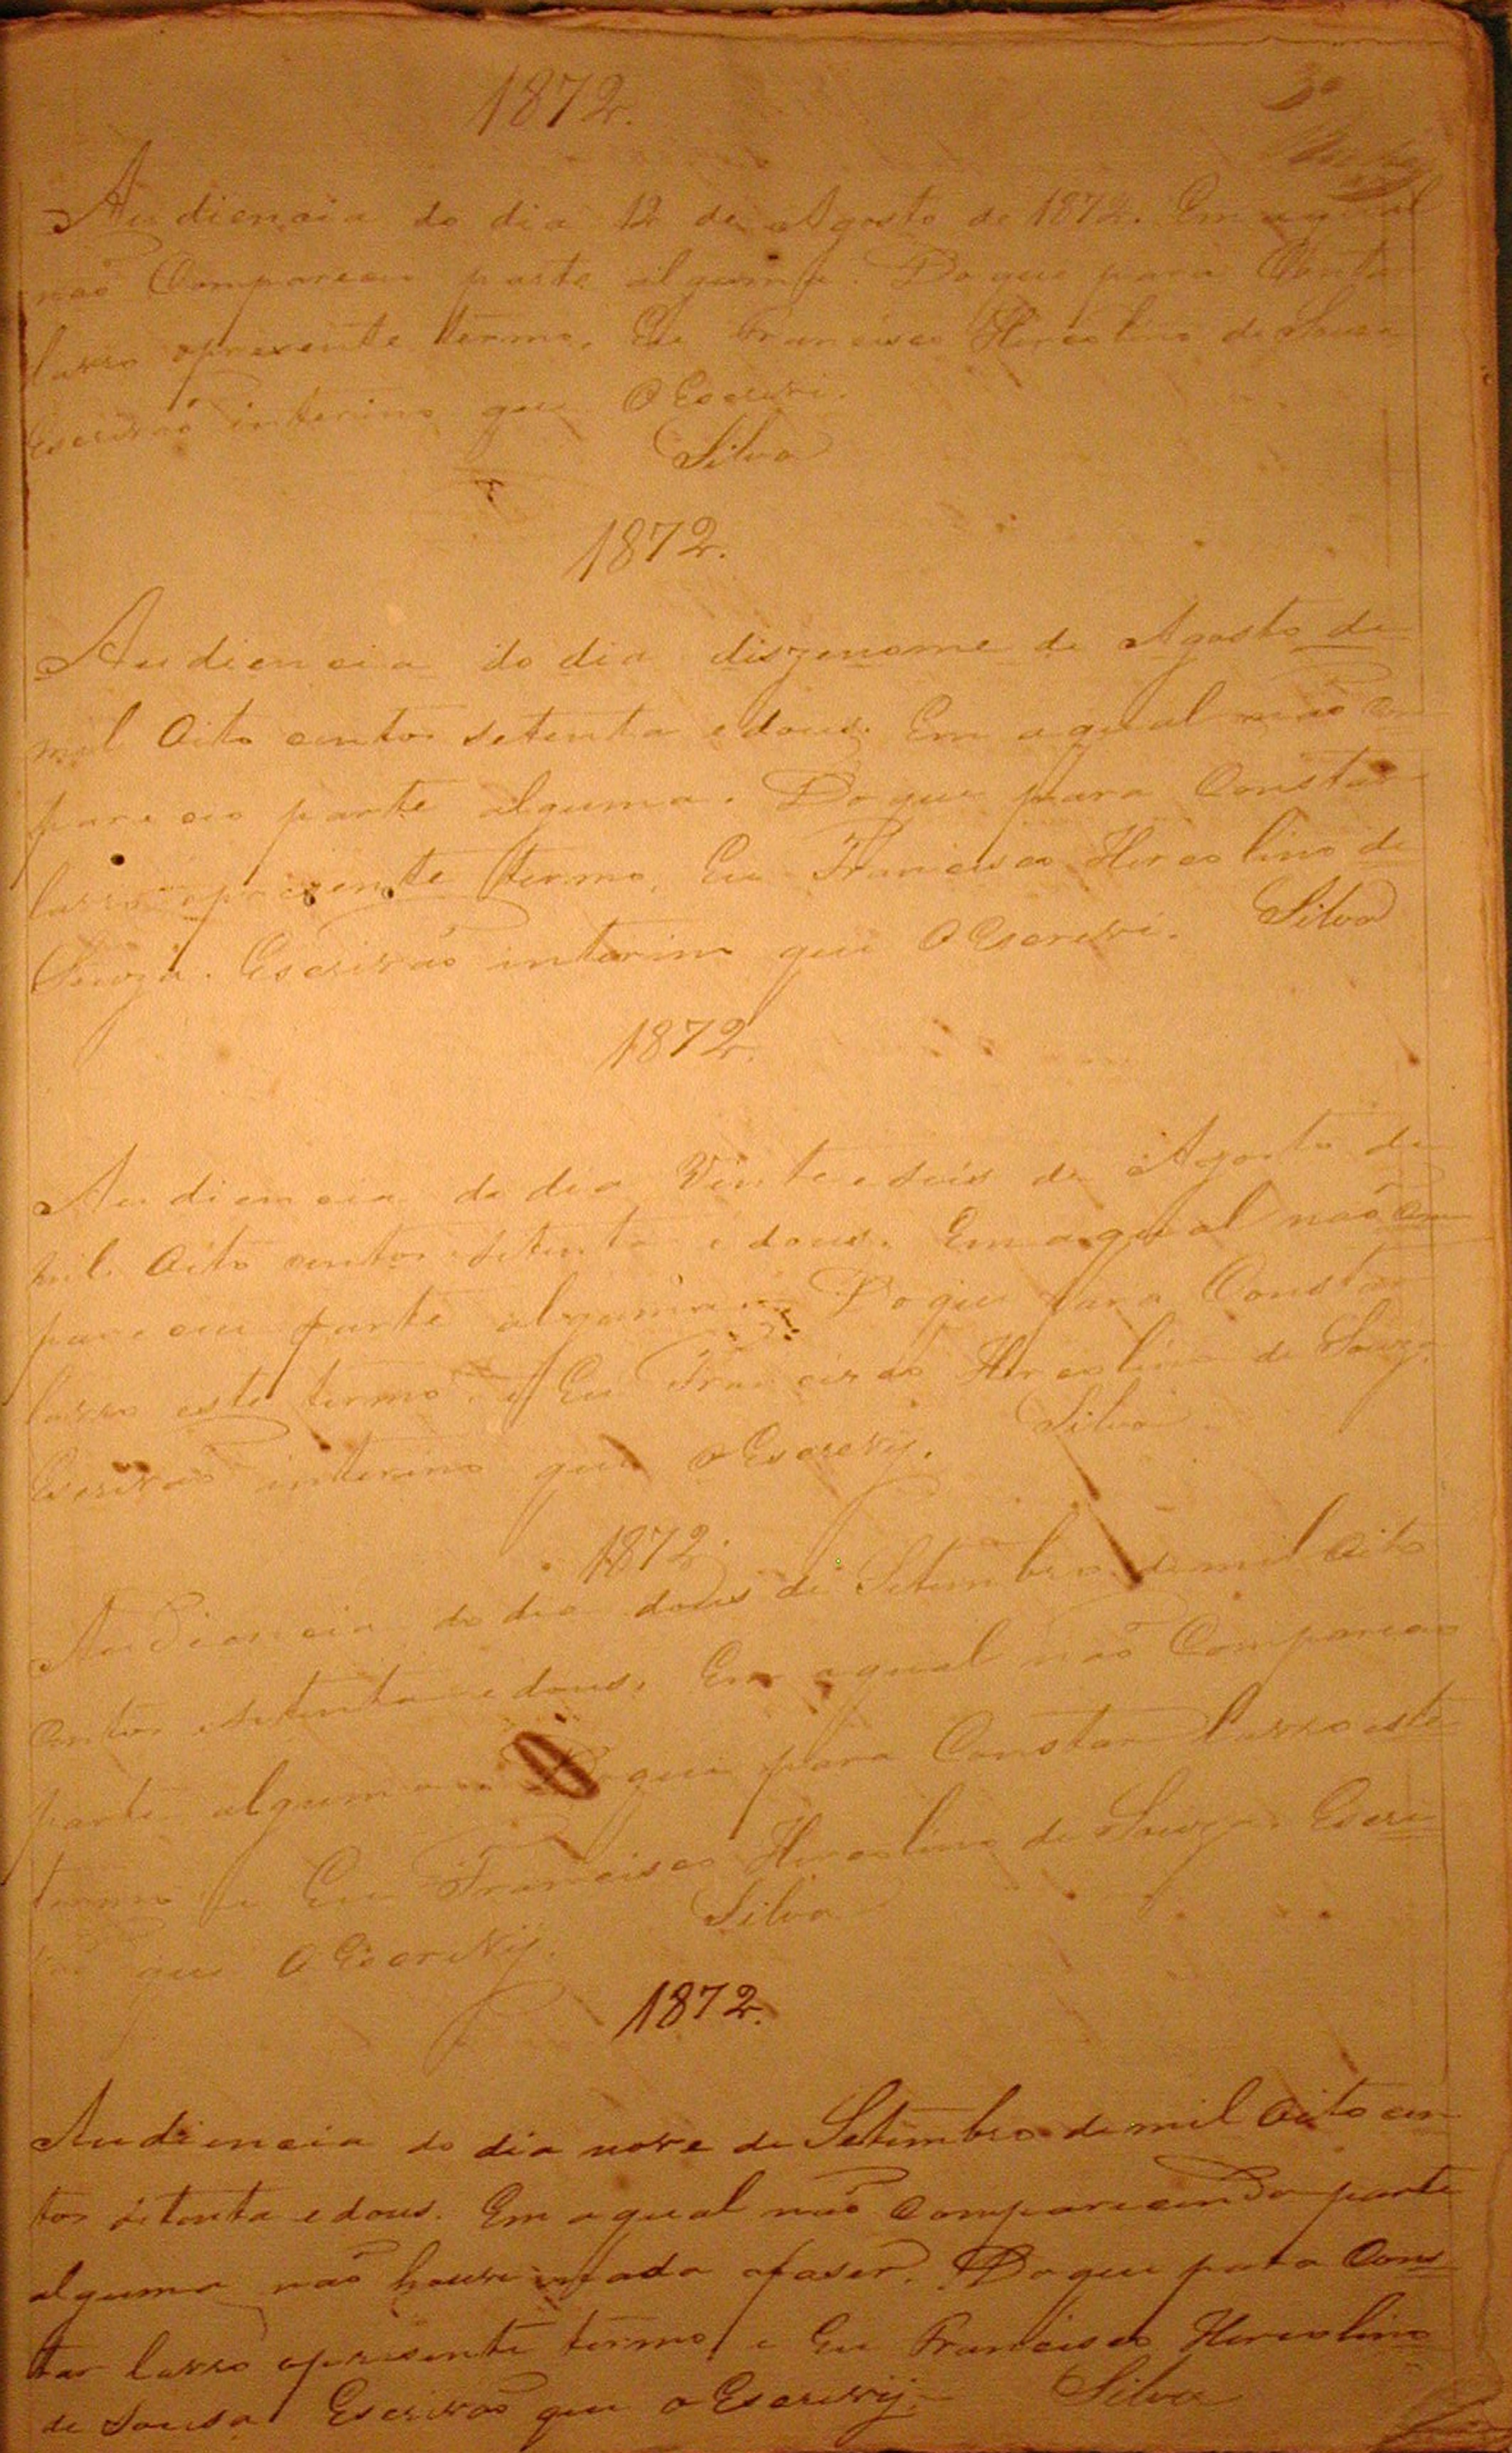 1872.
3º
Audiencia do dia 12 de Agosto de 1872. Em aqual
não Compareceu parte alguma. Do que para Constar
lavro opresente termo. Eu Francisco Hircolino de Souza
Escrivão interino que O Escrevi.
Silva
1872.
Audiencia do dia diszenove de Agosto de
mil Oito centos setenta edous. Em aqual não Com
pareceo parte alguma. Do que para Constar
lavro opresente termo, Eu Francisco Hircolino de
Souza. Escrivão interino que O Escrevi. Silva
1872.
Audiencia do dia Vinte e seis de Agosto de
mil Oito centos setenta e dous. Em aqual não Com
pareceu parte alguma. Do que para Constar
lavro este termo. e Eu Francisco Hircolino de Souza
Escrivão interino que O Escrevij. Silva
1872.
Audiencia do dia dous de Setembro de mil Oito
Centos setenta edous. Em aqual não Compareceo
parte alguma Do que para Constar lavro este
termo e Eu Francisco Hircolino de Souza. Escri
vão que O Escrevij. Silva
1872.
Audiencia do dia nove de Setembro de mil Oito cen
tos setenta edous. Em aqual não Comparecendo parte
alguma não houve nada afaser. Do que para Cons
tar lavro opresente termo e Eu Francisco Hircolino
de Sousa Escrivão que o Escrevij. Silva